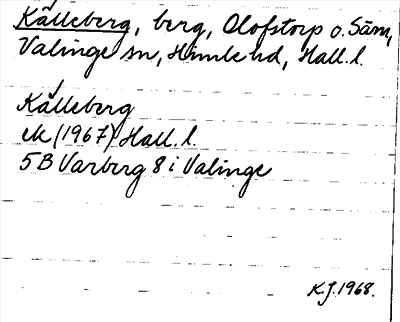 Kålleberg, berg, Olofstorp o. Säm,
Valinge sn, Himle hd, Hall. l.
Kålleberg
ek (1967) Hall. l.
5B Varberg 8 i Valinge
K.J. 1968.